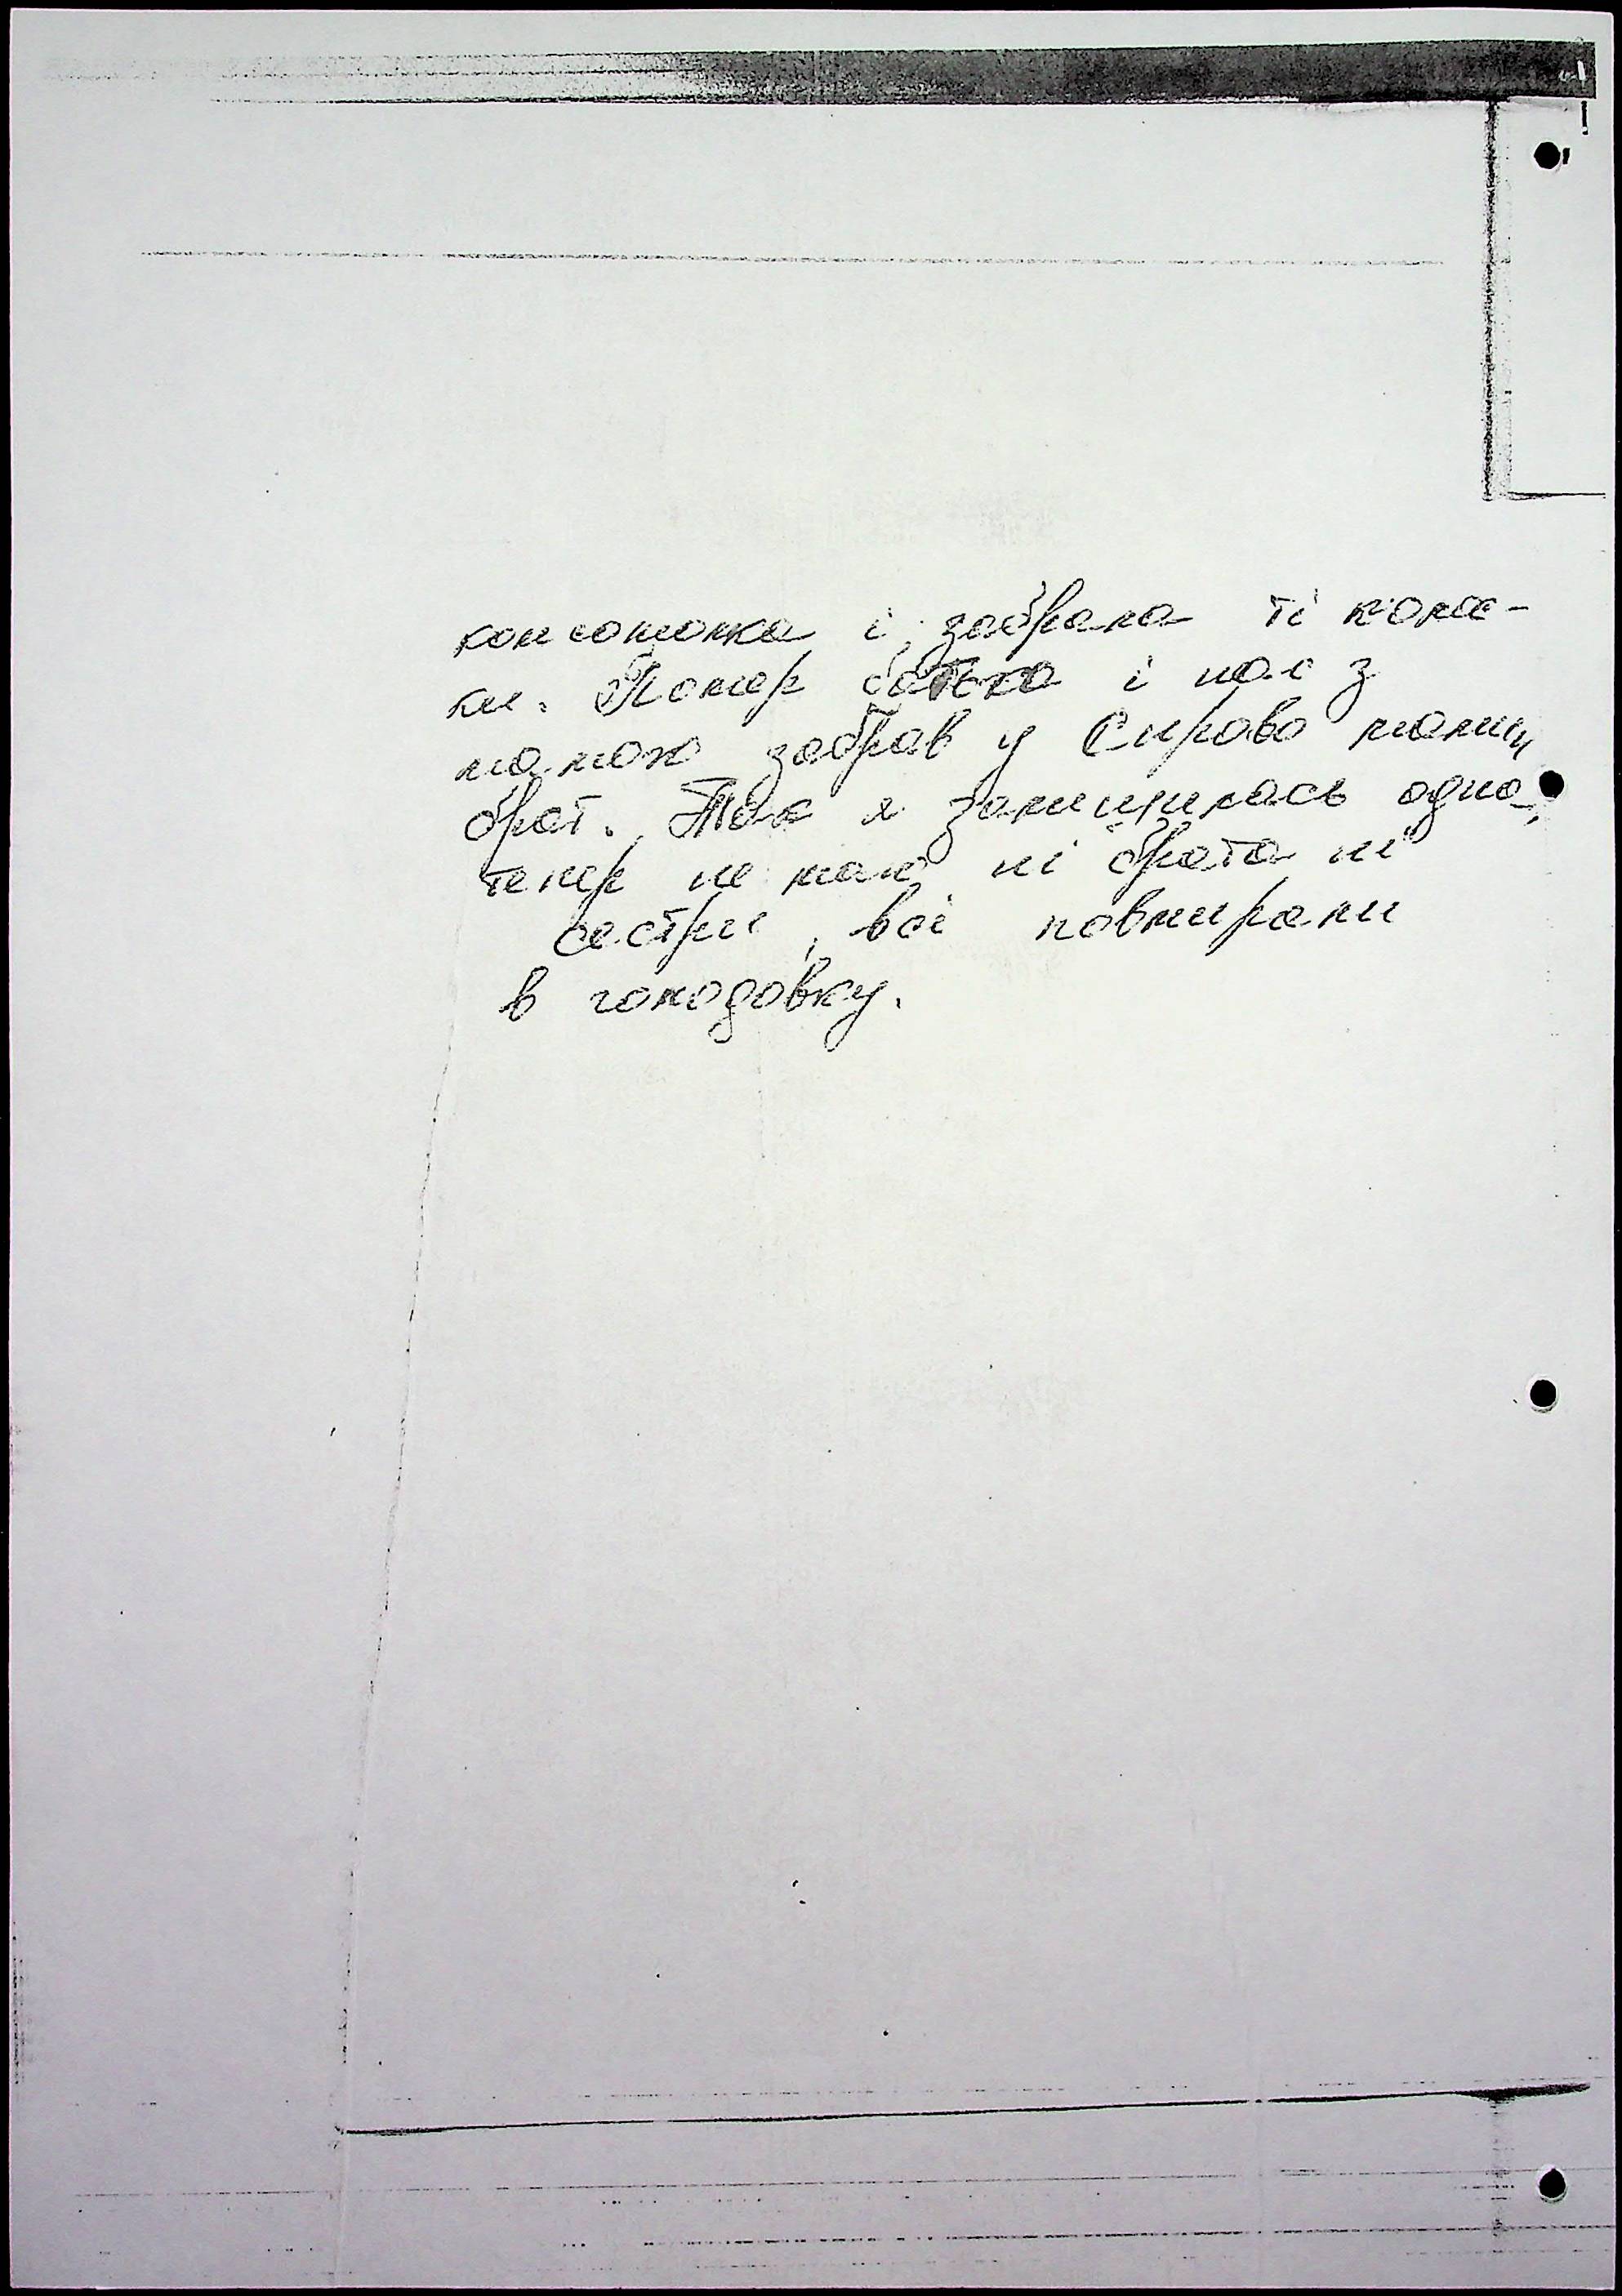 комсомолка і забрала ті колос-
ки. Помер батько і нас з
мамою забрав у Сирово мамин
брат. Так я залишилась одна,
тепер не маю ні брата ні
сестри, всі повмирали
в голодовку.